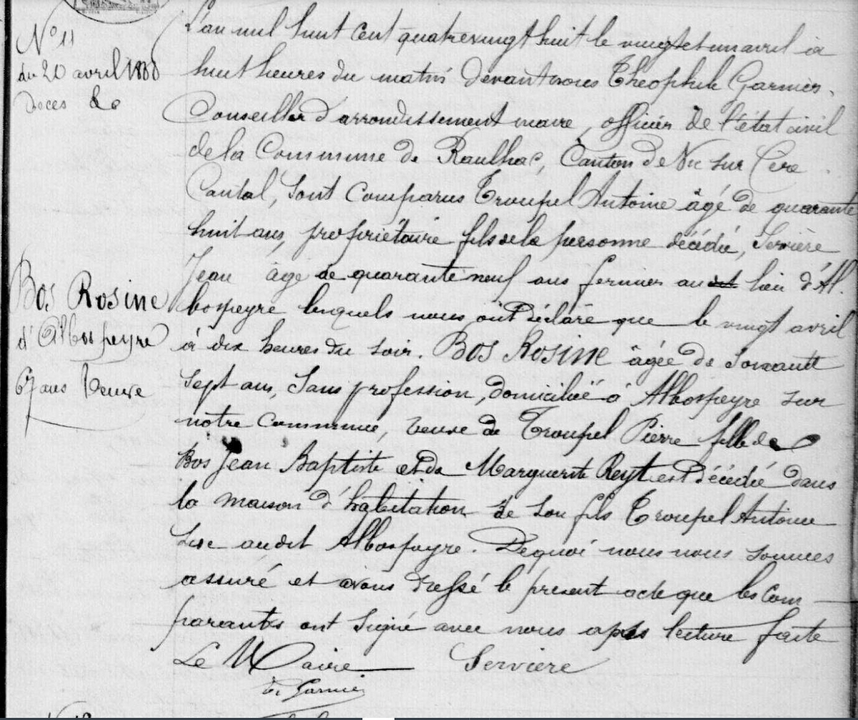 N° 11
du 20 avril 1888
Décès de
Bos Rosine
d'Albospeyre
67 ans Veuve
L'an mil huit cent quatrevingt huit le vingt et un avril à
huit heures du matin devant nous Théophile Garnier,
Conseiller d'arrondissement maire, officier de l'état civil
de la Commune de Raulhac, Canton de Vic sur Cère
Cantal, sont comparus Troupel Antoine âgé de quarante
huit ans, propriétaire fils de la personne décédée, Servière
Jean âgé de quarante neuf ans fermier au lieu d'Al-
bospeyre lesquels nous ont déclaré que le vingt avril
à dix heures du soir. Bos Rosine âgée de soixante
sept ans, sans profession, domiciliée à Albospeyre sur
notre Commune, veuve de Troupel Pierre fille de
Bos Jean Baptiste et de Marguerite Reyt est décédée dans
la maison d'habitation de son fils Troupel Antoine
sise audit Albospeyre. De quoi nous nous sommes
assuré et avons dressé le présent acte que les com-
parants ont signé avec nous après lecture faite
Le Maire Servière
Th Garnier